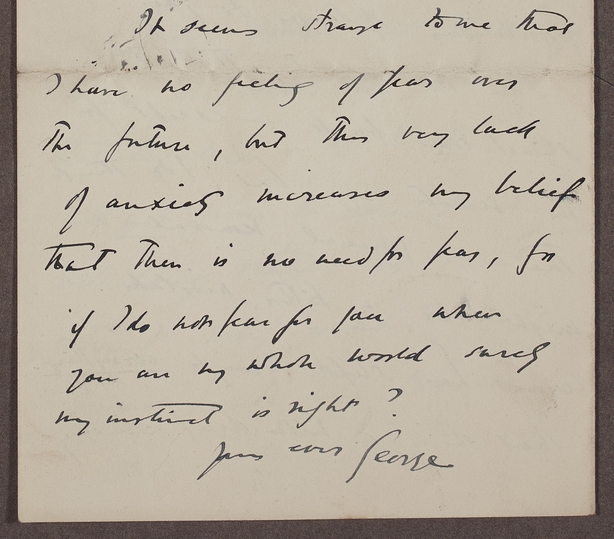 It seems strange to me that
I have no feeling of fear over
the future, but this very lack
of anxiety increases my belief
that there is no need for fear, for
if I do not fear for you when
you are my whole world surely
my instinct is right?
Yours ever George